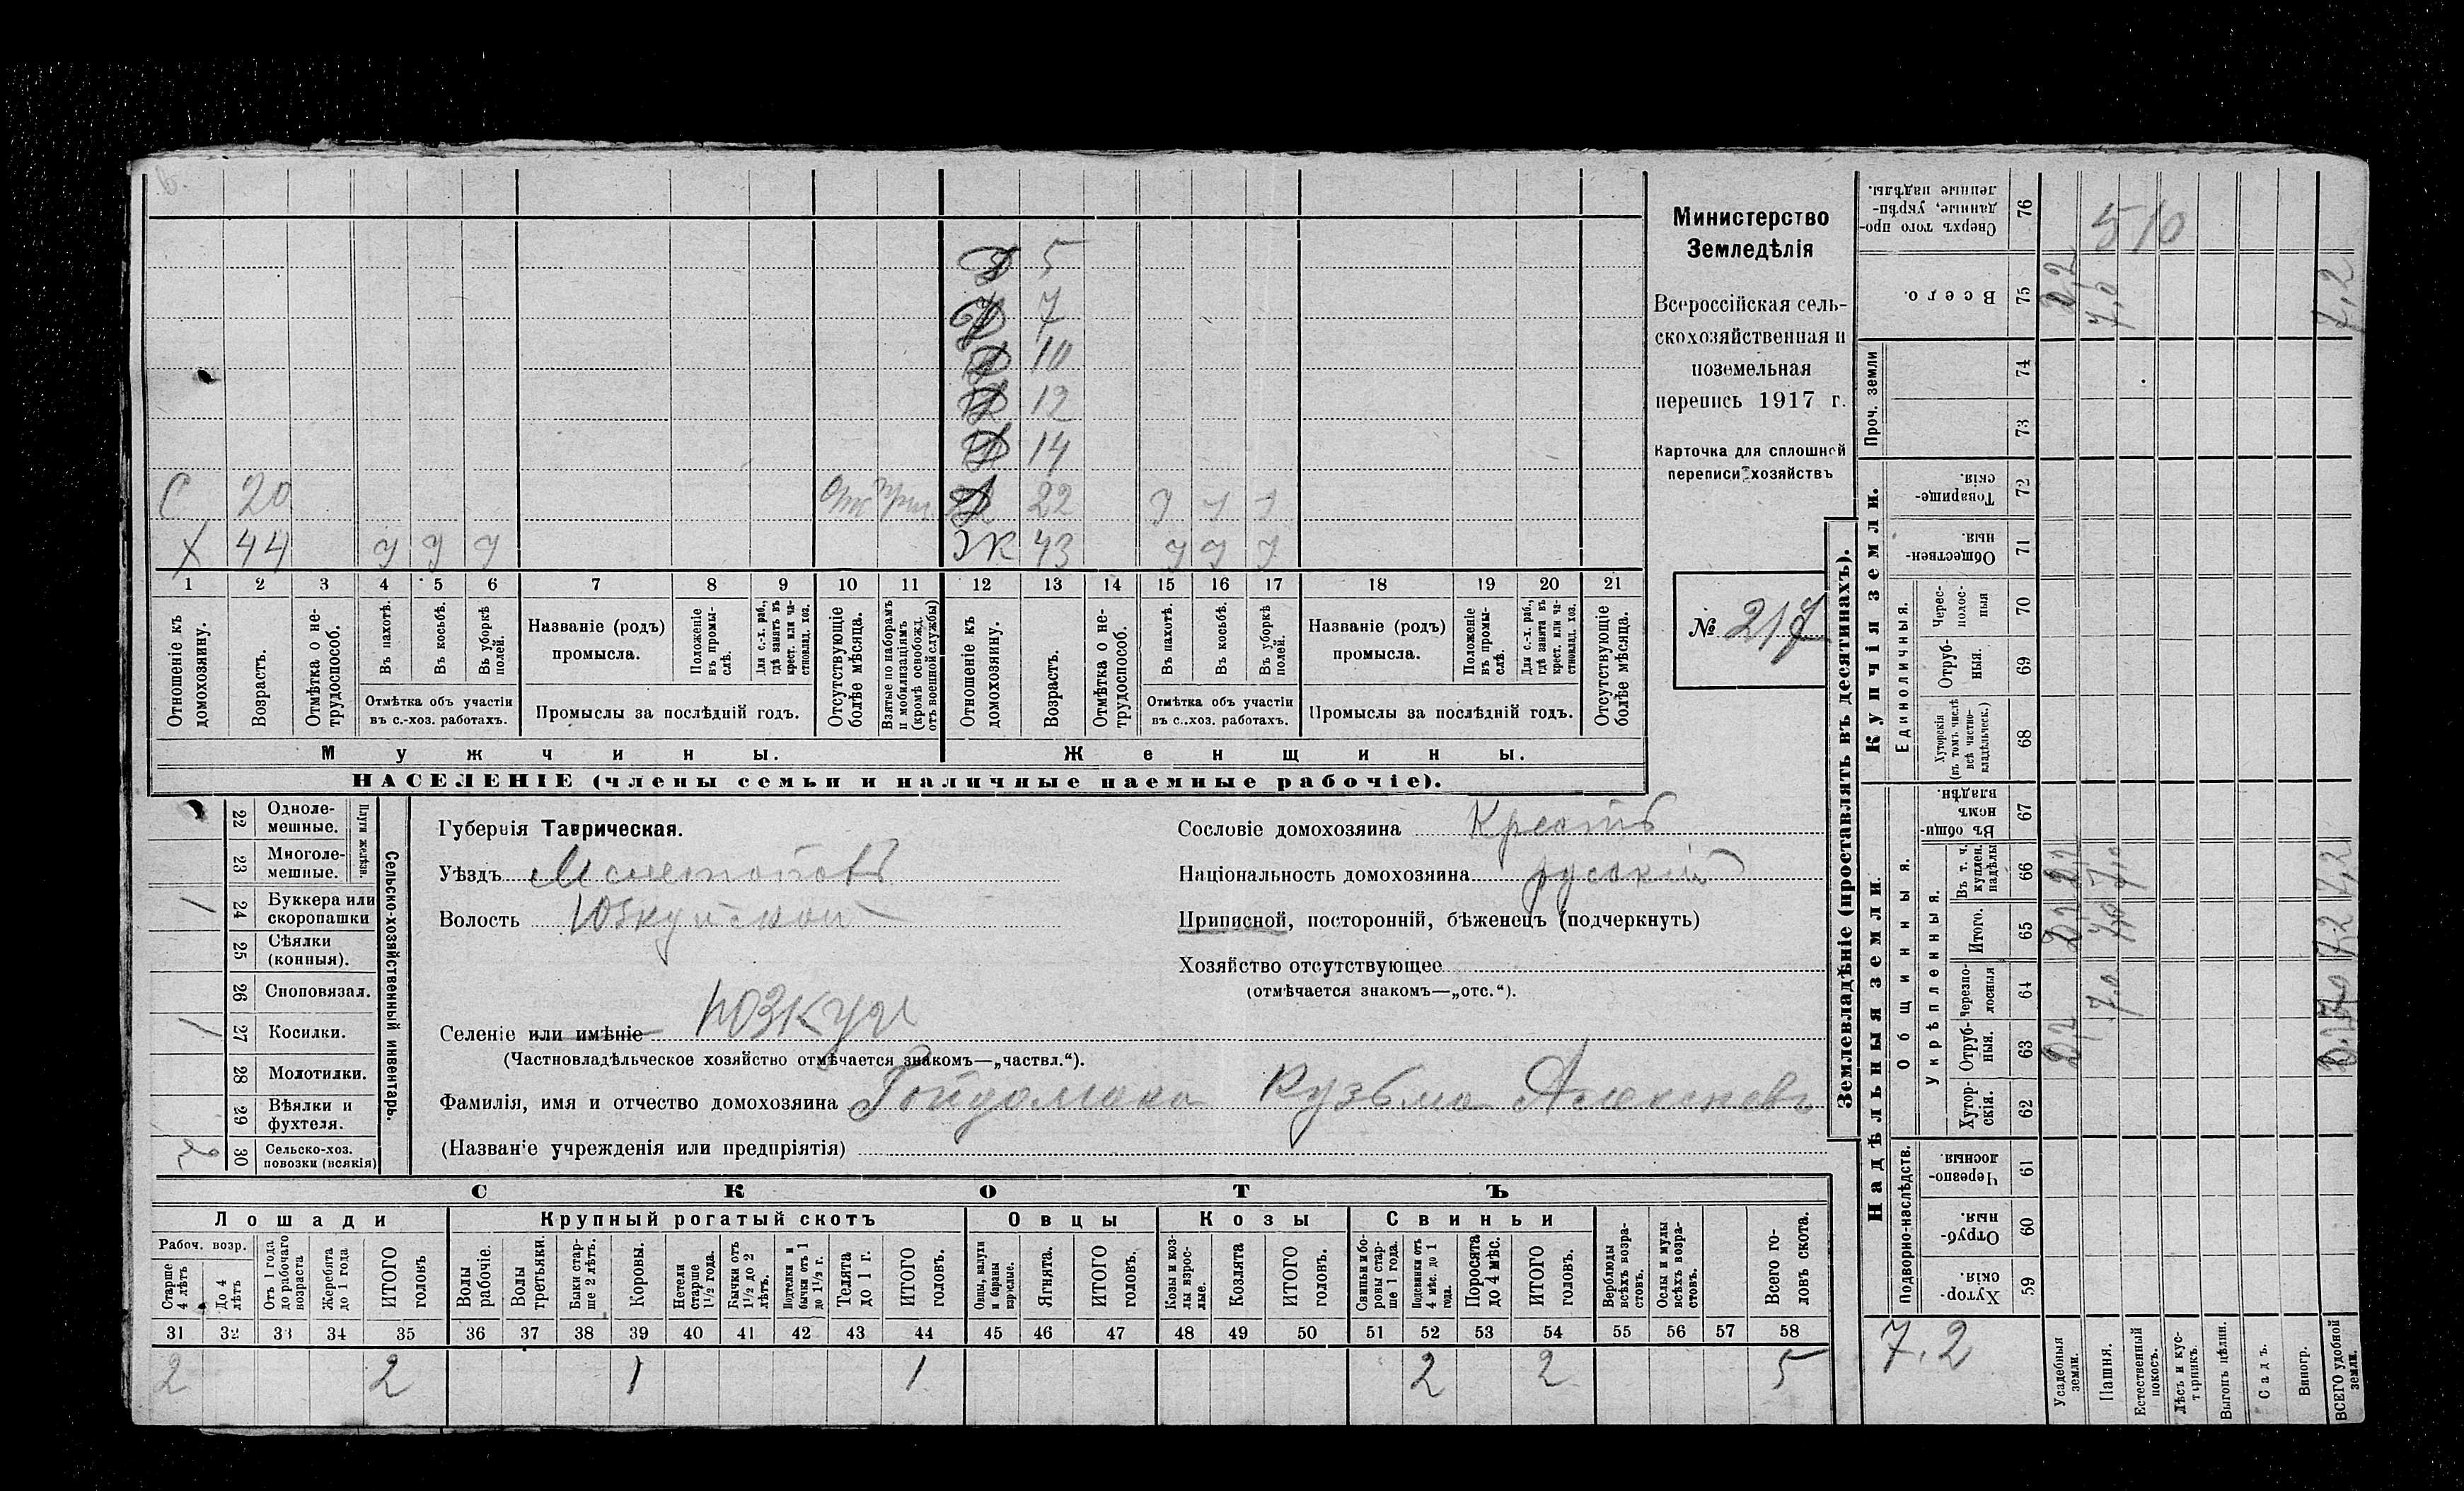 5
7
10
12
14
С 20 22 у у у
Х 44 у у у Ж 43 у у у
1 2 3 4 5 6 7 8 9 10 11 12 13 14 15 16 17 18 19 20 21
Отношеніе къ домохозяину.
Возрастъ.
Отмѣтка о не-
трудоспособ.
Въ пахотѣ.
Въ косьбѣ.
Въ уборкѣ полей.
Отмѣтка объ участіи
въ с.-хоз. работахъ.
Названіе (родъ)
промысла.
Положеніе въ промы-
слѣ.
Для с.-х. раб., гдѣ занятъ въ крест. или ча-
стновлад. хоз.
Промыслы за послѣдній годъ.
Отсутствующіе болѣе мѣсяца.
Взятые по наборамъ и мобилизаціямъ (кромѣ освобожд. отъ военной службы)
Отношеніе къ домохозяину.
Возрастъ.
Отмѣтка о не-
трудоспособ.
Въ пахотѣ.
Въ косьбѣ.
Въ уборкѣ полей.
Отмѣтка объ участіи
въ с..хоз. работахъ.
Названіе (родъ)
промысла.
Положеніе въ промы-
слѣ.
Для с.-х. раб., гдѣ занята въ крест. или ча-
стновлад. хоз.
Промыслы за послѣдній годъ.
Отсутствующіе болѣе мѣсяца.
Мужчины. Женщины.
НАСЕЛЕНІЕ (члены семьи и наличные наемные рабочіе).
Министерство
Земледѣлія
Всероссійская сель-
скохозяйственная и
поземельная
перепись 1917 г.
Карточка для сплошной
переписи хозяйствъ
№ 217
Сельско-хозяйственный инвентарь.
Плуги желѣзн.
22 Одноле-
мешные.
23 Многоле-
мешные.
1 24 Буккера или
скоропашки
25 Сѣялки
(конныя).
26 Сноповязал.
1 27 Косилки.
28 Молотилки.
29 Вѣялки и
фухтеля.
30 Сельско-хоз.
повозки (всякія)
Губернія Таврическая.
Уѣздъ
Волость Юзкуйской
Селеніе или имѣніе Юзкуи
(Частновладѣльческое хозяйство отмѣчается знакомъ—„частвл.“).
Фамилія, имя и отчество домохозяина Гойдомака Кузьма
(Названіе учрежденія или предпріятія)
Сословіе домохозяина Крестъ
Національность домохозяина русскій
Приписной, посторонній, бѣженецъ (подчеркнуть)
Хозяйство отсутствующее
(отмѣчается знакомъ—„отс.“).
СКОТЪ
Лошади Крупный рогатый скотъ Овцы Козы Свиньи
Рабоч. возр.
Старше 4 лѣтъ
До 4 лѣтъ
Отъ 1 года до рабочаго возраста
Жеребята до 1 года
ИТОГО головъ
Волы рабочіе.
Волы третьяки.
Быки стар-
ше 2 лѣтъ.
Коровы.
Нетели старше 1½ года.
Бычки отъ 1½ до 2 лѣтъ.
Подтелки и бычки отъ 1 до 1½ г.
Телята до 1 г.
ИТОГО головъ.
Овцы, валухи и бараны взрослые.
Ягнята.
ИТОГО головъ.
Козы и коз-
лы взрос-
лые.
Козлята
ИТОГО головъ.
Свиньи и бо-
ровы стар-
ше 1 года.
Подсвинки отъ 4 мѣс. до 1 года.
Поросята до 4 мѣс.
ИТОГО головъ.
Верблюды всѣхъ возра-
стовъ.
Ослы и мулы всѣхъ возра-
стовъ.
Всего го-
ловъ скота.
31 32 33 34 35 36 37 38 39 40 41 42 43 44 45 46 47 48 49 50 51 52 53 54 55 56 57 58
2 2 1 1 2 2 5
Землевладѣніе (проставлять въ десятинахъ).
Надѣльныя земли Купчія земли. Проч. земли
Подворно-наслѣдств.
Общинныя.
Укрѣпленныя.
Единоличныя.
Сверхъ того про-
данные, укрѣп-
ленные надѣлы. 76 510
Всего. 75 2,2 7,0 7,2
74
73
Товарище-
скія. 72
Обществен-
ныя. 71
Черес-
полос-
ныя 70
Отруб-
ныя. 69
Хуторскія
(въ томъ числѣ
всѣ частно-
владѣльческ.) 68
Въ общи-
номъ
владѣн. 67
Въ т. ч.
куплен.
надѣлы 66
Итого. 65
Черезпо-
лосныя 64 7,0
Отруб-
ныя. 63
Хутор-
скія. 62
Черезпо-
лосныя. 61
Отруб-
ныя. 60
Хутор-
скія. 59
7.2
Усадебныя земли.
Пашня.
Естественный покосъ.
Лѣсъ и кус-
тарникъ.
Выгонъ цѣлин.
Садъ.
Виногр.
ВСЕГО удобной земли.